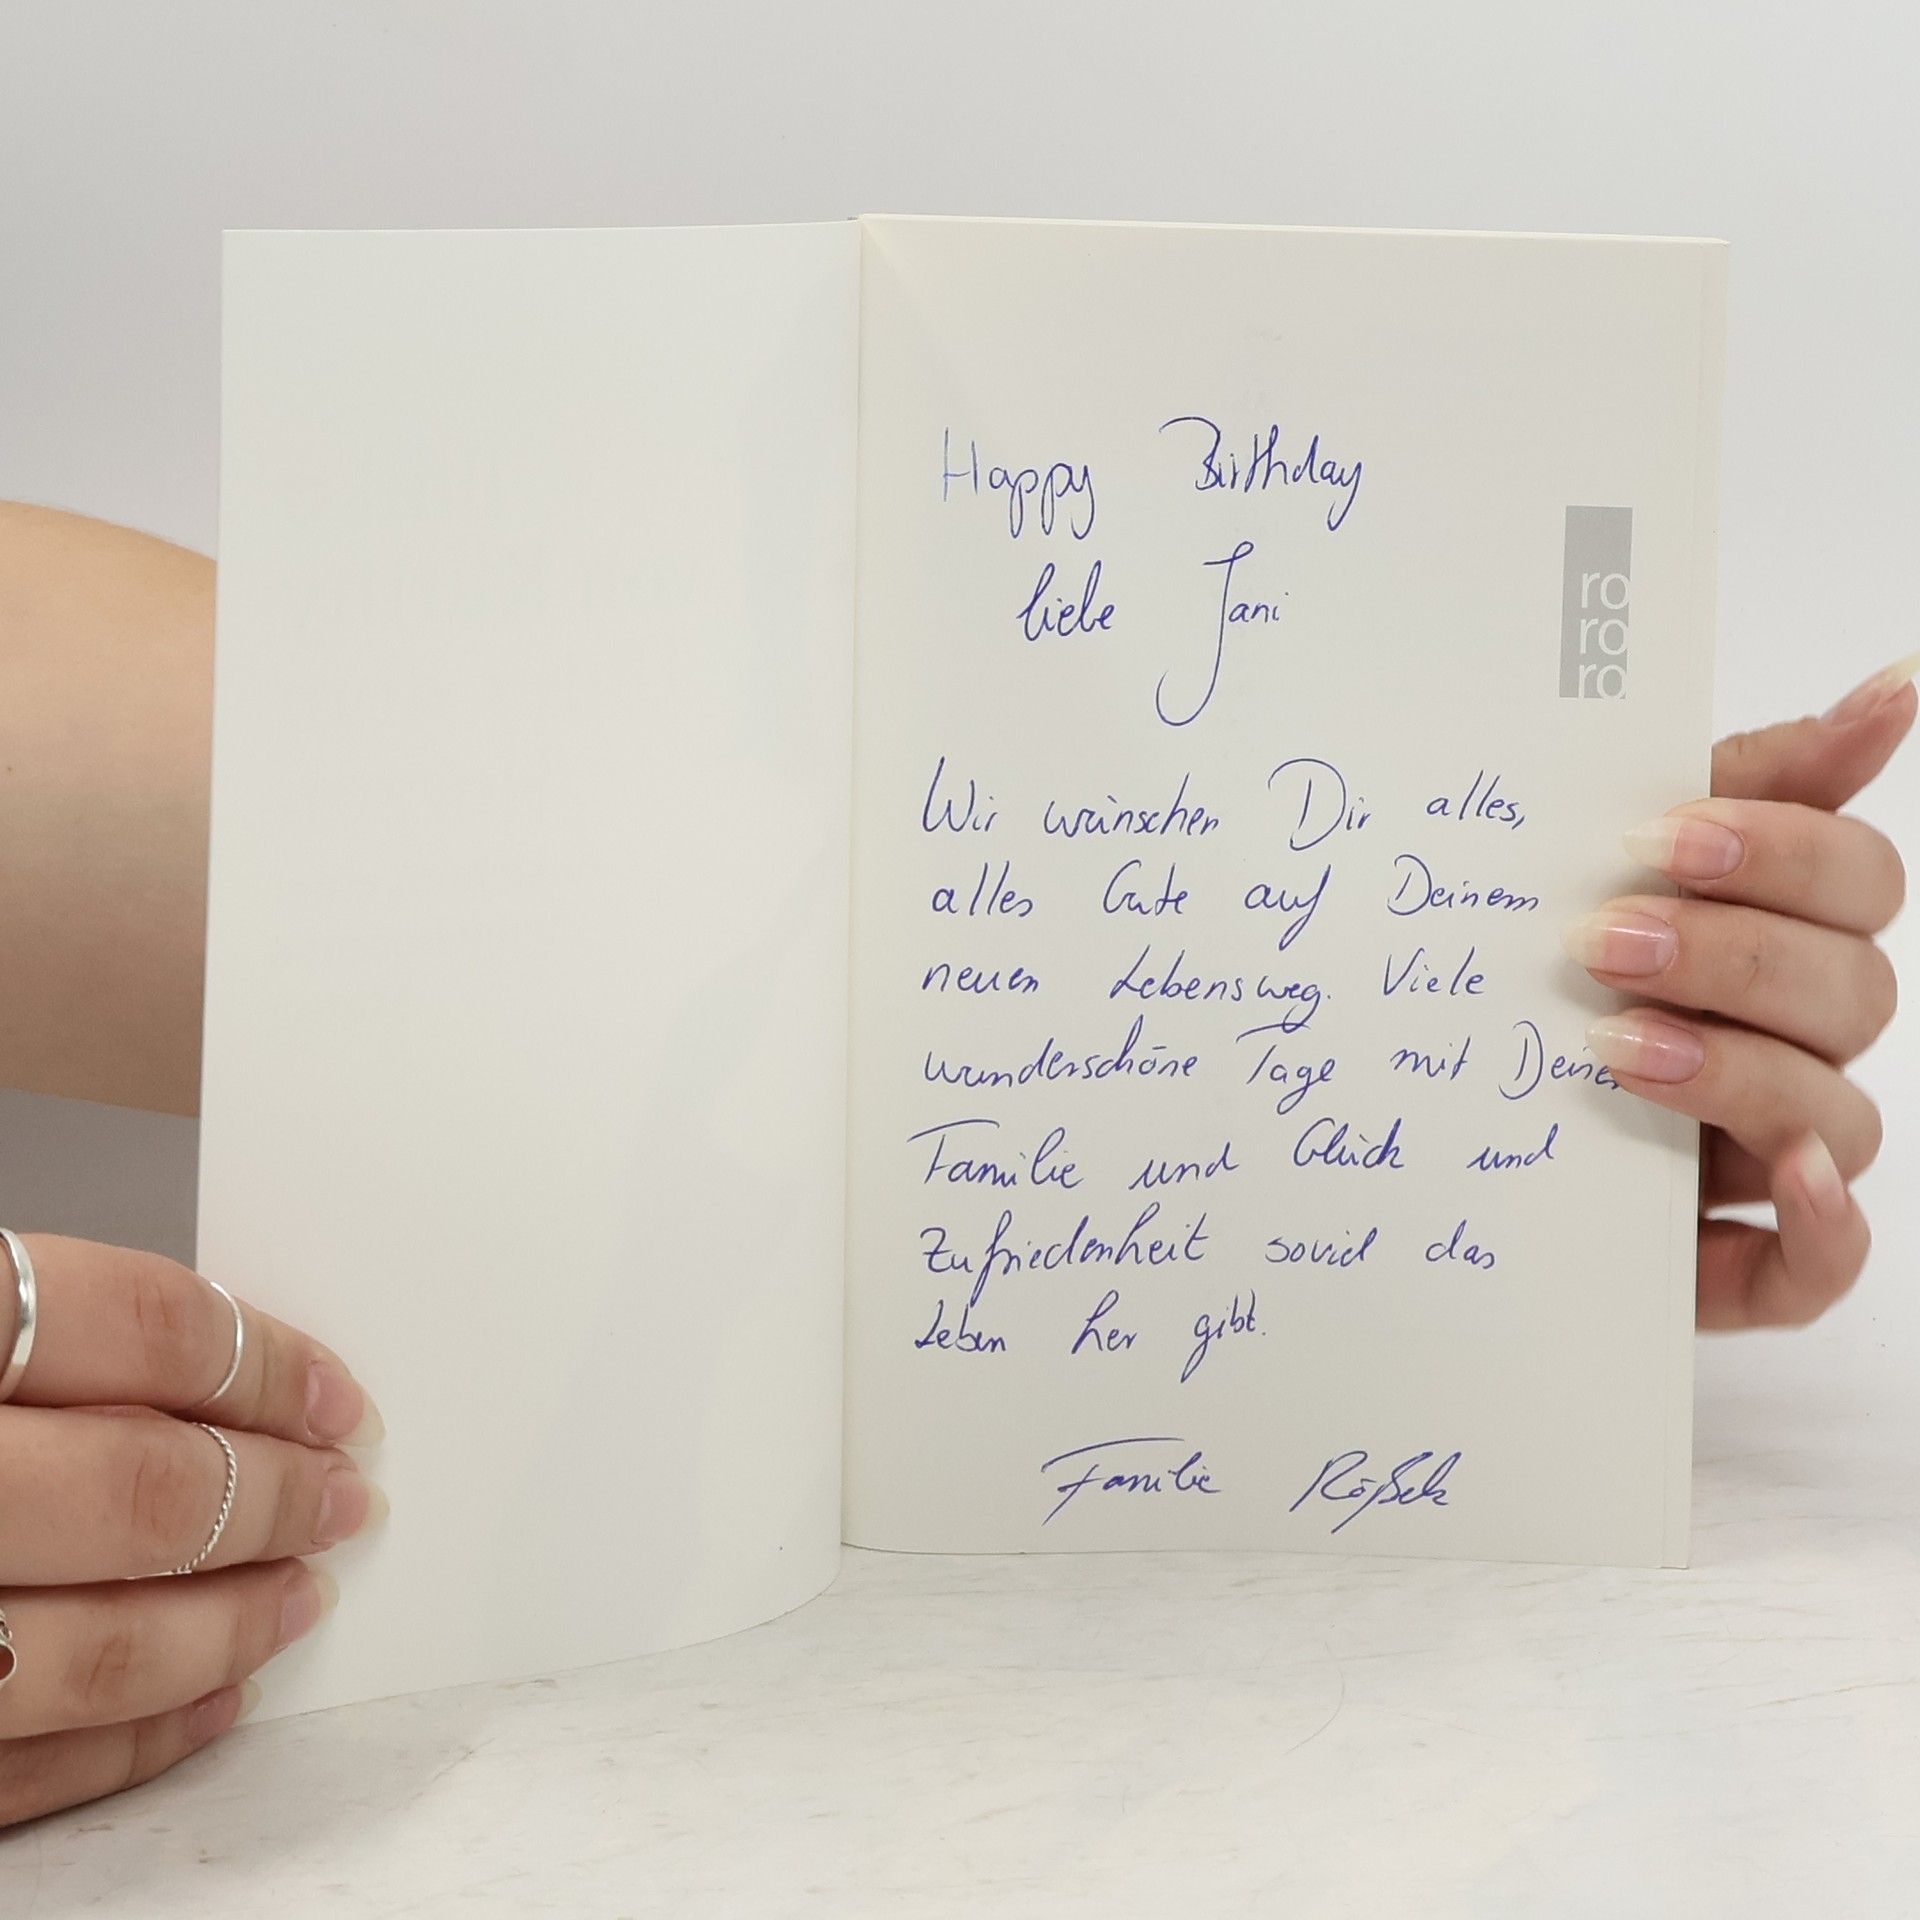 Happy Birthday
liebe Jani
ro
ro
ro
Wir wünschen Dir alles,
alles Gute auf Deinem
neuen Lebensweg. Viele
wunderschöne Tage mit Deiner
Familie und Glück und
Zufriedenheit soviel das
Leben her gibt.
Familie